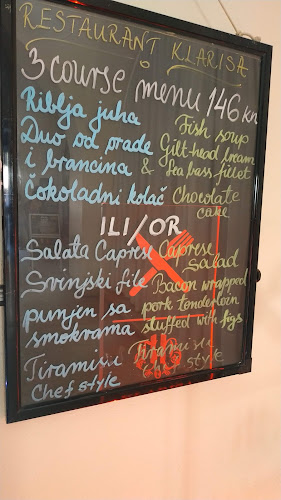 RESTAURANT KLARISA
3 course menu 146 kn
Riblja juha
Fish soup
Duo od orade
Gilt head bream
i brancina
& Sea bass fillet
Čokoladni kolač
Chocolate
cake
ILI/OR
Salata Caprese
Caprese
Salad
Svinjski file
Bacon wrapped
punjen sa
pork tenderloin
smokvama
stuffed with figs
Tiramisu
Tiramisu
Chef style
Chef style